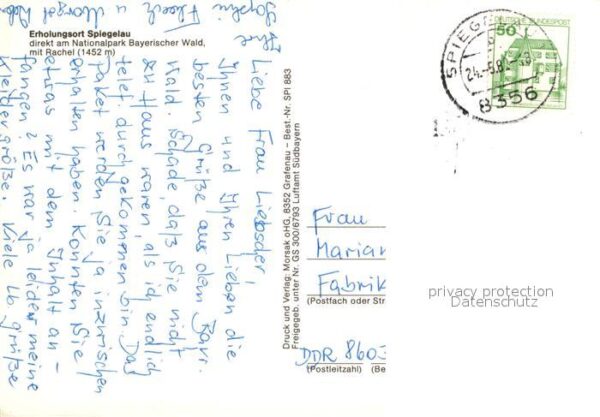 Erholungsort Spiegelau
direkt am Nationalpark Bayerischer Wald,
mit Rachel (1452 m)
Liebe Frau Liebsder,
Ihnen und Ihren Lieben die
besten Grüße aus dem Bayr.
Wald. Schade, daß Sie nicht
zu Haus waren, als ich endlich
telef. durchgekommen bin. Das
Paket werden Sie ja inzwischen
erhalten haben. Konnten Sie
etwas mit dem Inhalt an-
fangen? Es war ja leider meine
Kleidergröße. Viele lb Grüße
Ihre
u Margot
Druck und Verlag: Morsak oHG, 8352 Grafenau – Best.-Nr. SPI 883
Freigegeb. unter Nr. GS 300/6793 Luftamt Südbayern
DEUTSCHE BUNDESPOST
50
SPIEGELAU
8356
Frau
Marian
Fabrik
(Postfach oder Str
DDR 8603
(Postleitzahl) (Be
privacy protection
Datenschutz